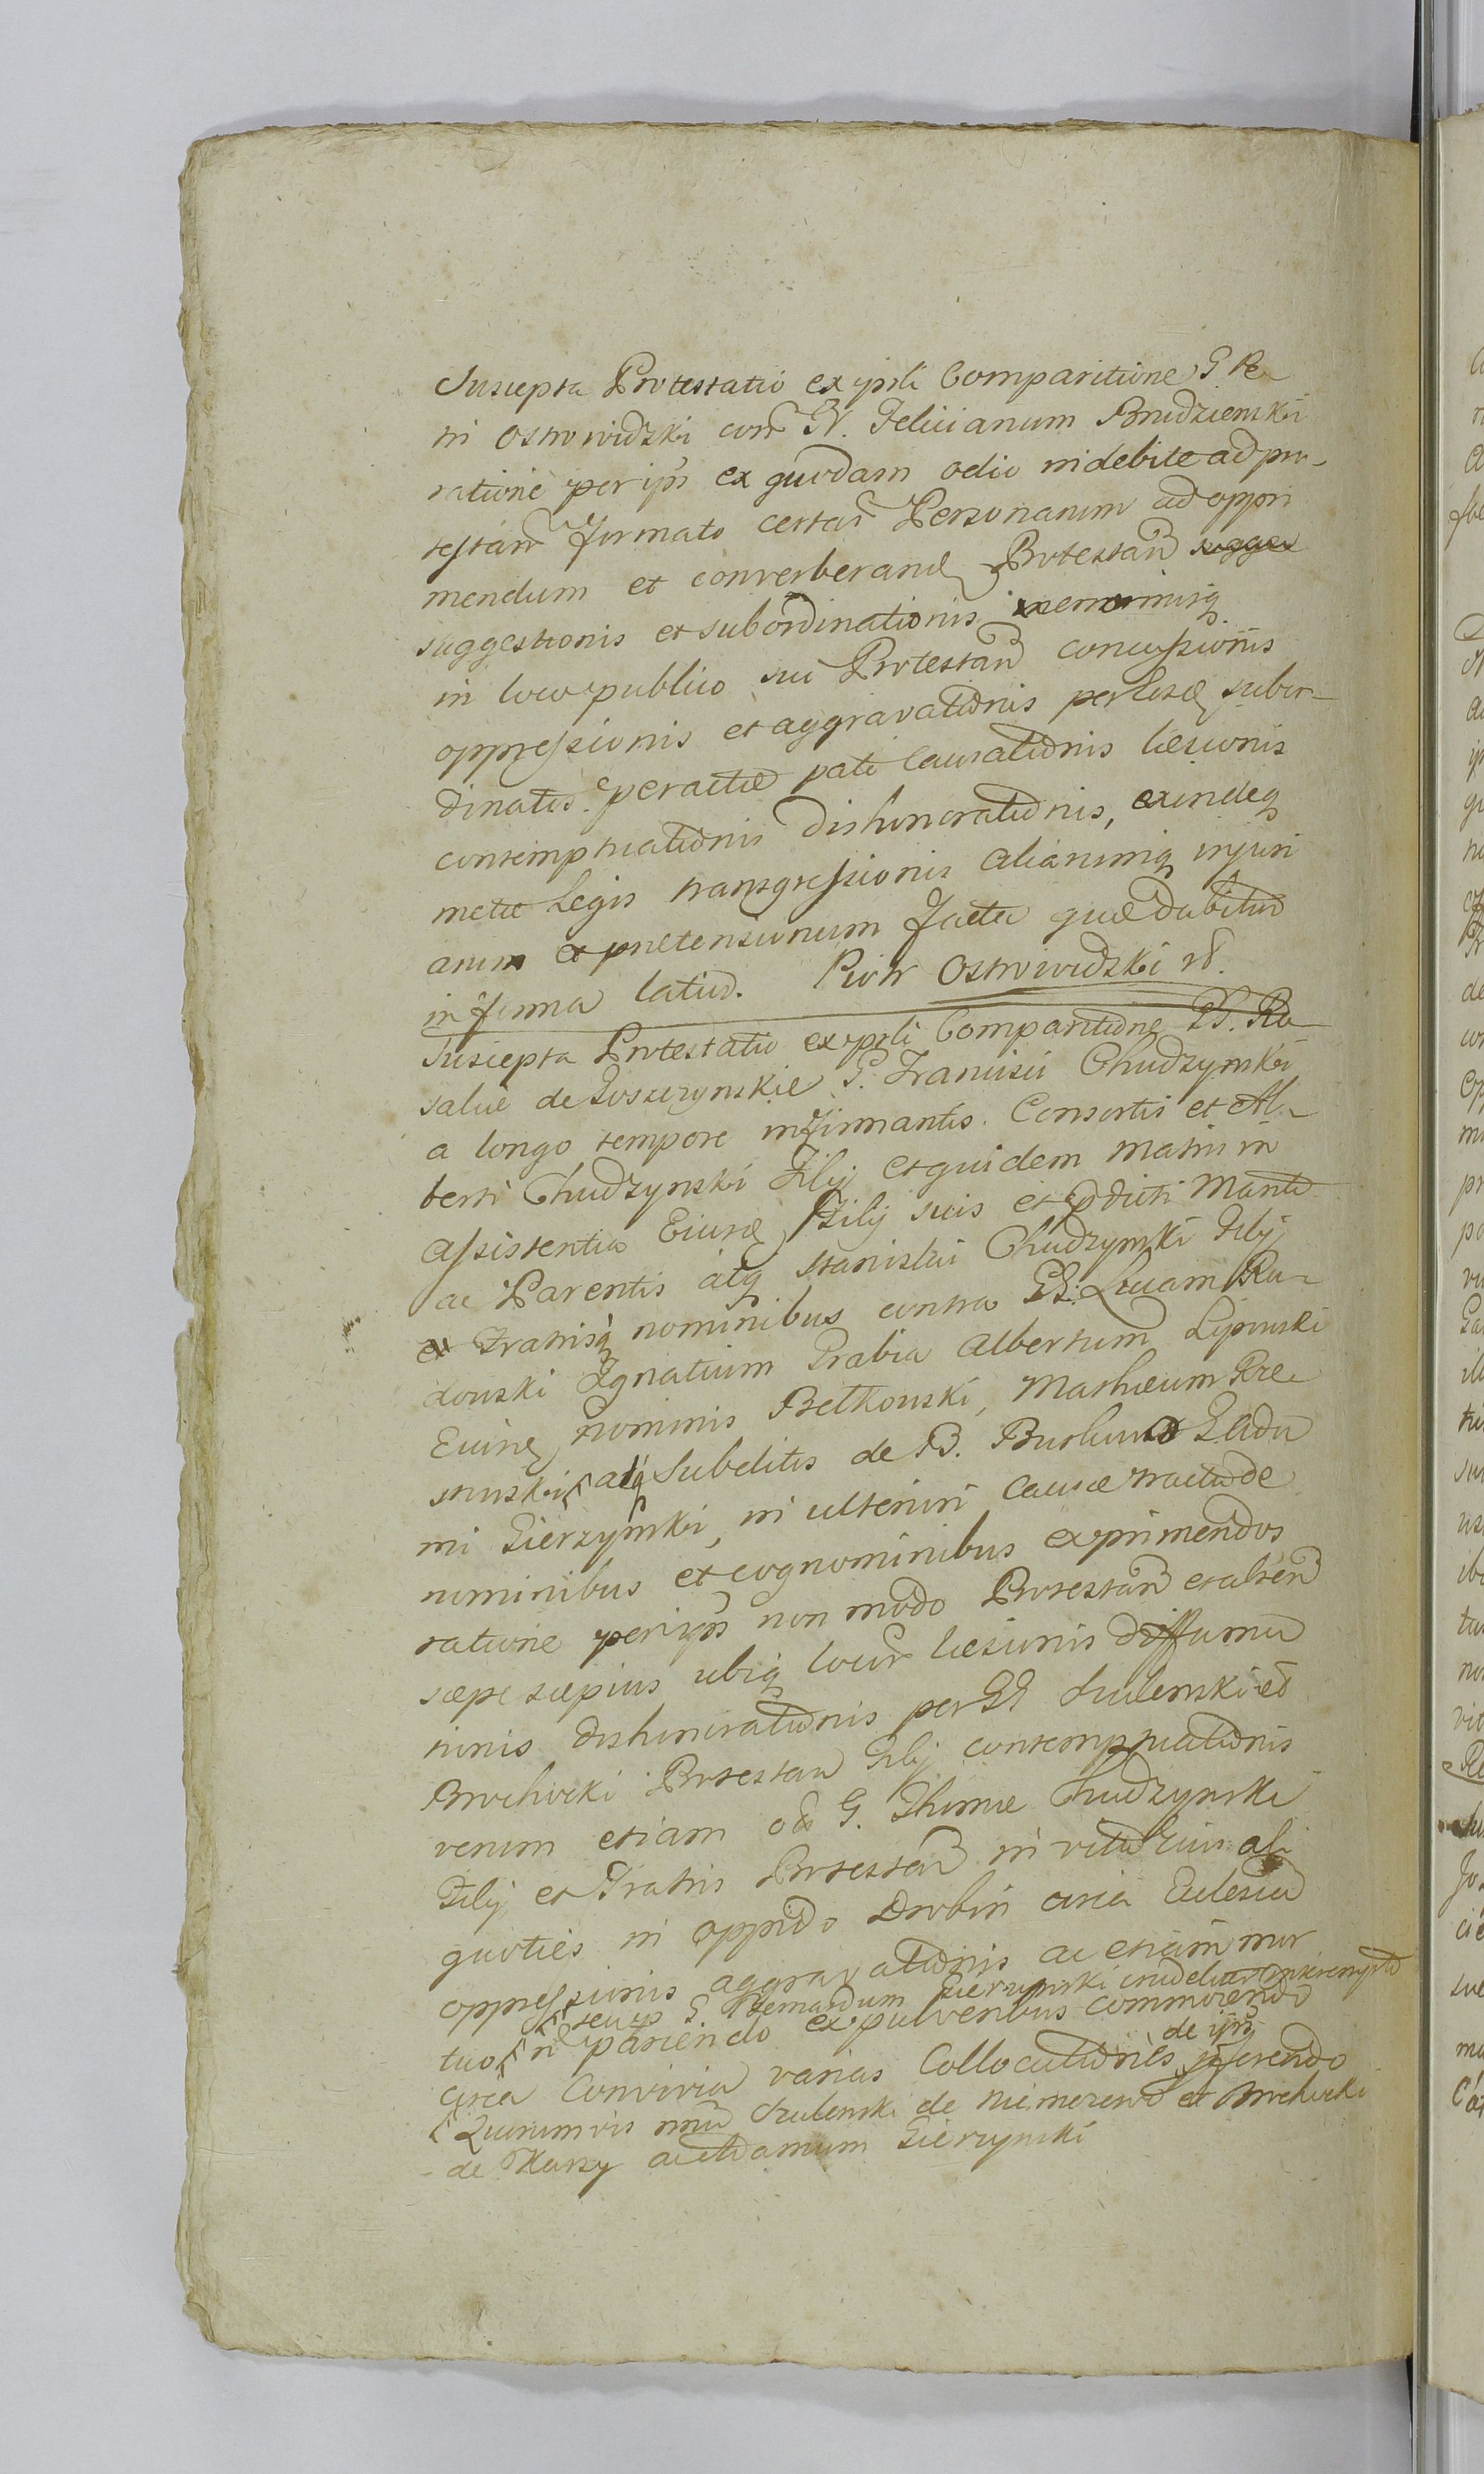 Suscepta Protestatio ex psli Comparitione G. Pe-
tri Ostrowidzki con N. Felicianum Brudzienski
ratione per ips ex quodam odio indebite ad pro-
testan formato certar Personarum ad oppri
mendum et converberand Protestan
suggestionis et subordinationis
in loco publico sui Protestan concussionis
oppressionis et aggravationis per subor-
dinatos peractae pati causationis laesionis
contemptuationis dishonorationis, exindeq
metae Legis transgressionis aliarumq injuri
arum et praetensionum facta quae dabitur
in forma latior. Piotr Ostrowidzki
Suscepta Protestatio ex psli Comparitione G. Ro
saliae de G. Francisci Chudzynski
a longo tempore infirmantis Consortis et Al-
berti Chudzynski Filij et quidem matris in
assistentia Eiusd Filij sui et pdicti Mariti
ac Parentis atq Stanislai Chudzynski Filij
et Fratrisq nominibus contra GG. Lucam Ru-
dowski Ignatium Grabia Albertum Lipinski
Eiusd nominis Betkowski, Mathaeum
atq Subditis de B. Ada
mi Gierzynski, in ulteriori causae tractu de
nominibus et cognominibus exprimendos
ratione per ips non modo Protestan et alter
saepe saepius ubiq locor laesionis diffama
tionis dishonorationis per GG Szulenski et
Brochocki Protestan Filij contemptuationis
verum etiam olis G. Thomae Chudzynski
Filij et Fratris Protestan in vita Eius ali
quoties in oppido Drobin circa Ecclesia
oppressionis aggravationis ac etiam mor
G. Bernardum Gierzynski
tuo pariendo ex pulveribus commovendo
de ips
circa Convivia varias Collocutiones
Quorumvis Szulenski de Niemerzewo et Brochocki
de Adamum Gierzynski